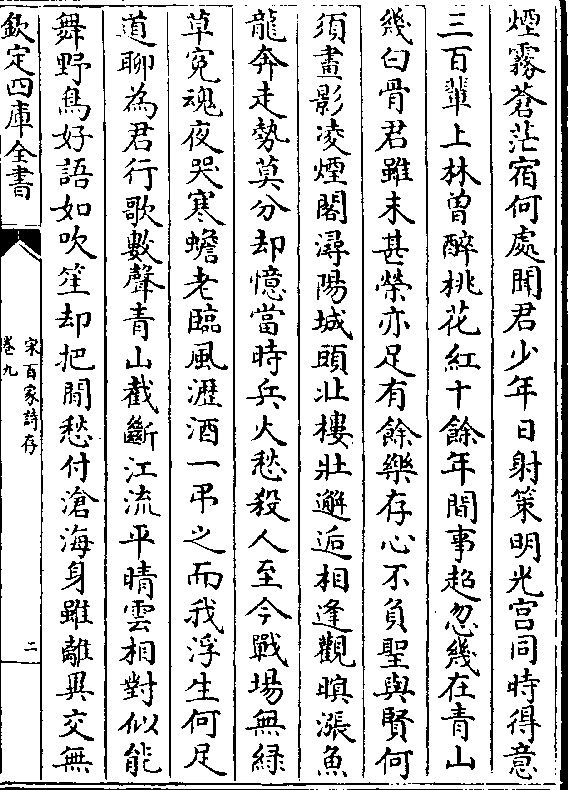 煙霧蒼茫宿何處聞君少年日射策明光宫同時得意
三百輩上林曽醉桃花紅十餘年間事超忽幾在青山
幾白骨君雖未甚榮亦足有餘樂存心不負聖與賢何
須畫影凌煙閣潯陽城頭北樓壯邂逅相逢觀暝漲魚
龍奔走勢莫分却憶當時兵火愁殺人至今戰場無緑
草寃魂夜哭寒蟾老臨風瀝酒一弔之而我浮生何足
道聊為君行歌數聲青山截斷江流平晴雲相對似能
舞野鳥好語如吹笙却把閒愁付滄海身雖離異交無
欽定四庫全書
宋百家詩存
卷九
二